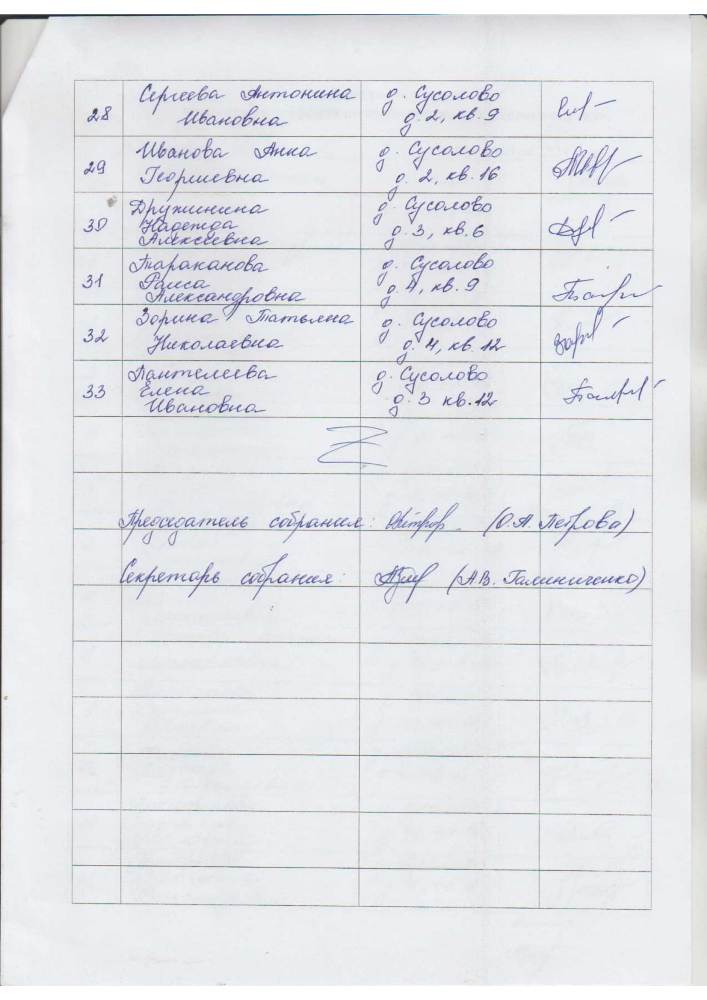 28 Сергеева Антонина д. Сусолово
Ивановна д. 2, кв. 9
29 Иванова Анна д. Сусолово
Георгиевна д. 2, кв. 16
30 Дружинина д. Сусолово
Надежда д. 3, кв. 6
Алексеевна
31 Тараканова д. Сусолово
Раиса д. 4, кв. 9
Александровна
32 Зорина Татьяна д. Сусолово
Николаевна д. 4, кв. 12
33 Пантелеева д. Сусолово
Елена д. 3 кв. 12
Ивановна
Председатель собрания: (О.А. Петрова)
Секретарь собрания: (А.В. Галиниченко)